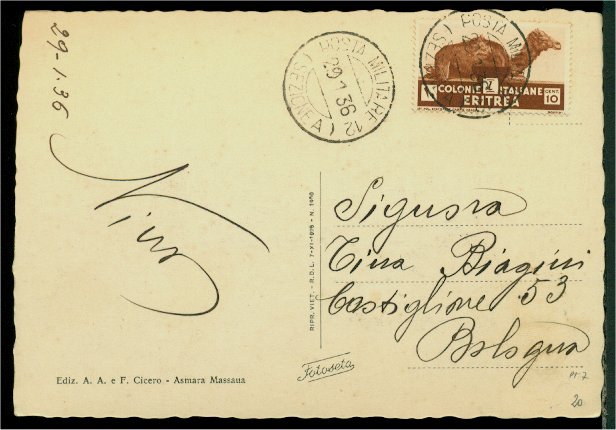 29-1-36
POSTA MILITARE 12
29 1 36
(SEZIONE A)
POSTA MILI
COLONIE ITALIANE
ERITREA
CENT. 10
Nino
RIPR. VIET. - R.D.L. 7-XI-1925 - N. 1950
Signora
Tina Biagini
Castiglione 53
Bologna
Ediz. A. A. e F. Cicero - Asmara Massaua
Fotoseta
20